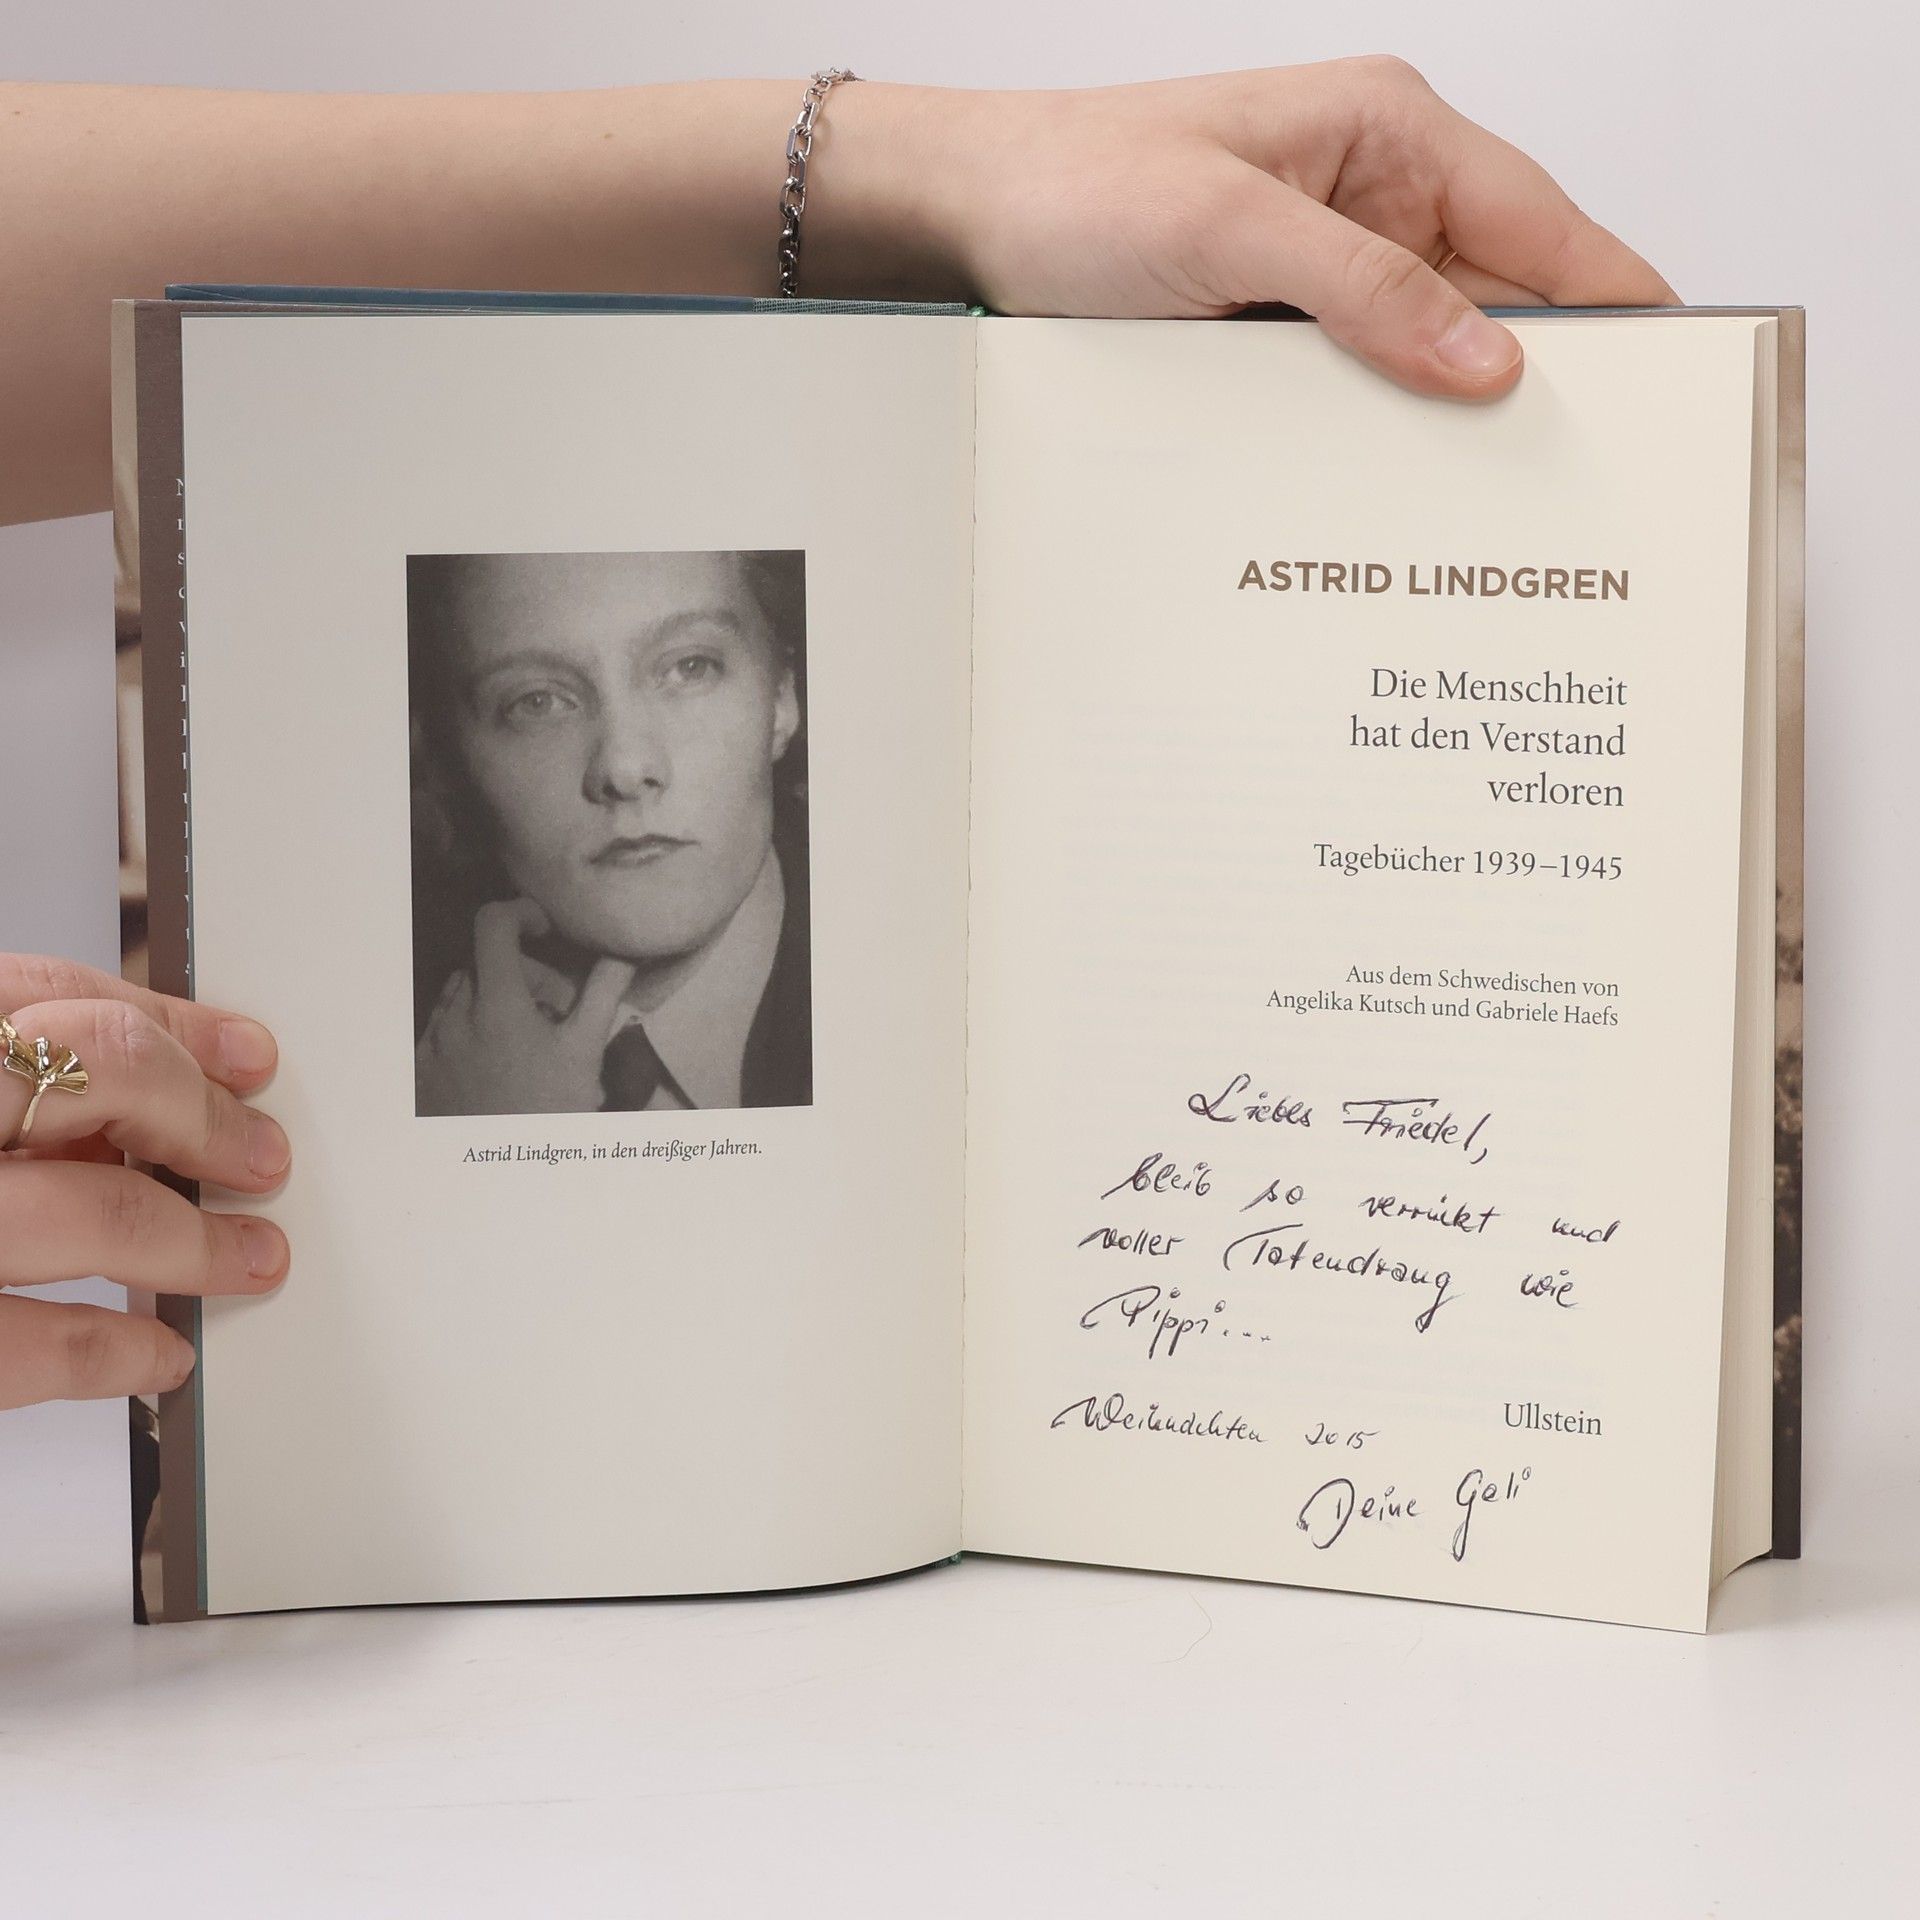 Astrid Lindgren, in den dreißiger Jahren.
ASTRID LINDGREN
Die Menschheit
hat den Verstand
verloren
Tagebücher 1939–1945
Aus dem Schwedischen von
Angelika Kutsch und Gabriele Haefs
Liebes Friedel,
bleib so verrückt und
voller Tatendrang wie
Pippi...
Weihnachten 2015
Ullstein
Deine Geli